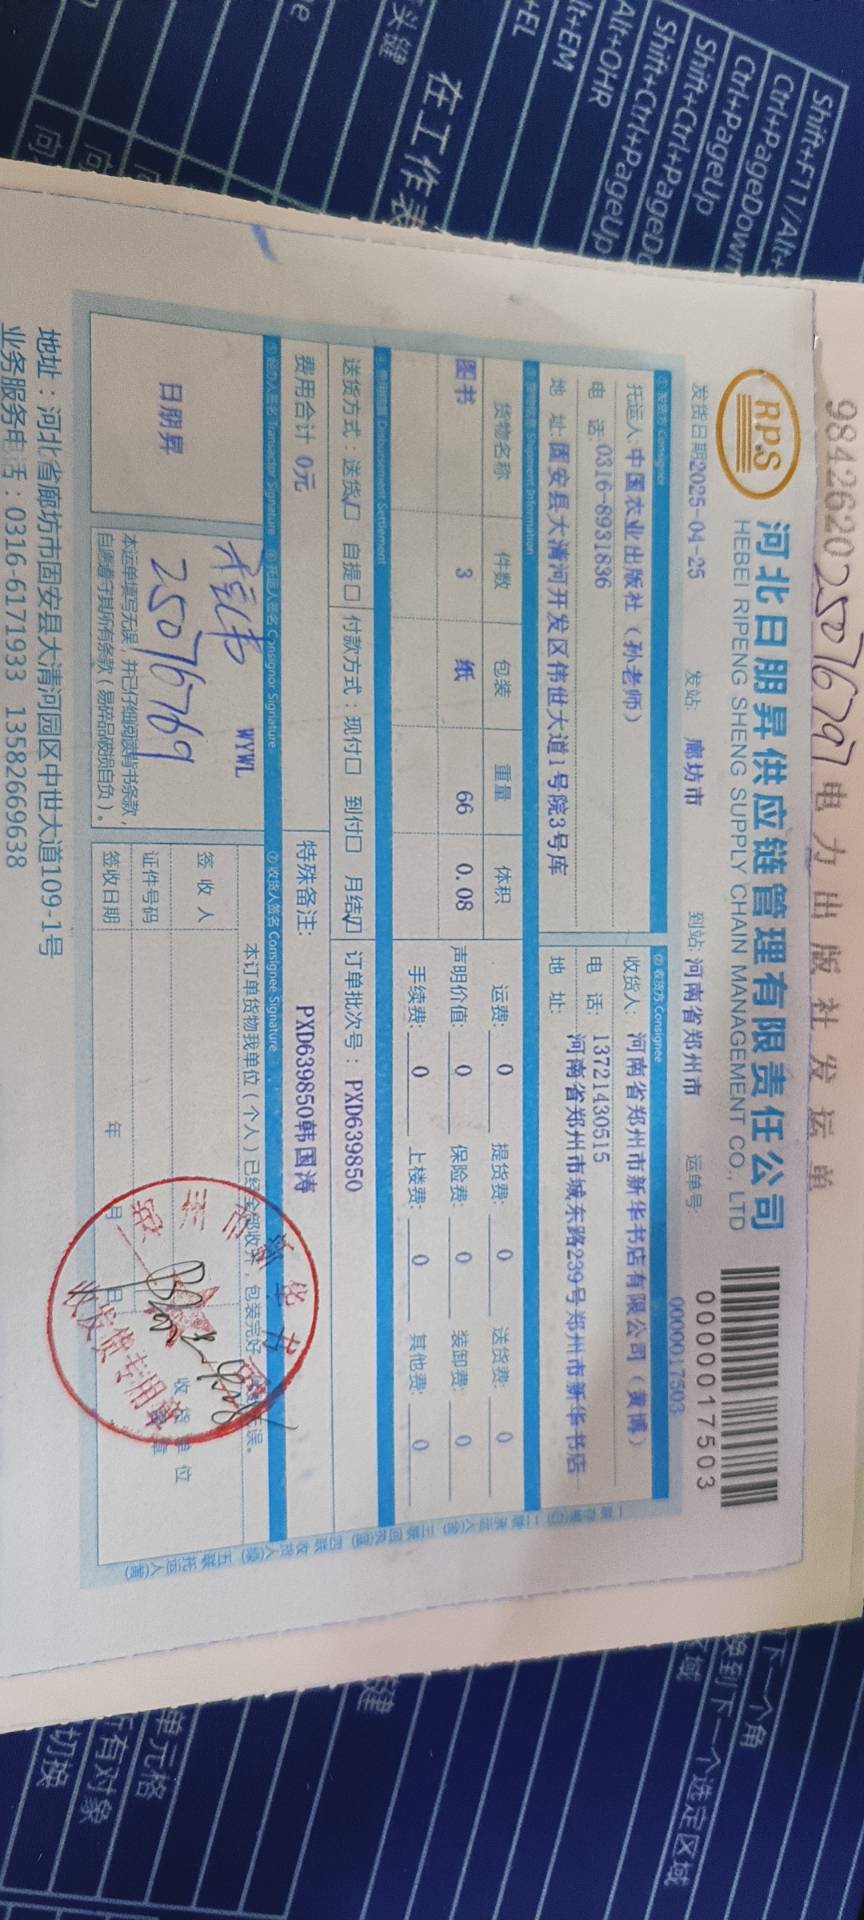 984262025076797电力出版社发运单
RPS
河北日朋昇供应链管理有限责任公司
HEBEI RIPENG SHENG SUPPLY CHAIN MANAGEMENT CO., LTD
0000017503
发货日期2025-04-25 发站: 廊坊市 到站: 河南省郑州市 运单号: 0000017503
① 发货方 Consigner ② 收货方 Consignee
托运人: 中国农业出版社（孙老师） 收货人: 河南省郑州市新华书店有限公司（黄博）
电 话: 0316-8931836 电 话: 13721430515
地 址: 固安县大清河开发区伟世大道1号院3号库 地 址: 河南省郑州市城东路239号郑州市新华书店
③ 货物信息 Shipment Information
货物名称 件数 包装 重量 体积 运费: 0 提货费: 0 送货费: 0
图书 3 纸 66 0.08 声明价值: 0 保险费: 0 装卸费: 0
手续费: 0 上楼费: 0 其他费: 0
④ 费用结算 Disbursement Settlement
送货方式: 送货☑ 自提□ 付款方式: 现付□ 到付□ 月结☑ 订单批次号: PXD639850
费用合计 0元 特殊备注: PXD639850韩国涛
⑤ 经办人签名 Transactor Signature ⑥ 托运人签名 Consignor Signature ⑦ 收货人签名 Consignee Signature
日朋昇
WYWL
25076769
本运单填写无误，并已仔细阅读背书条款，
自愿遵守其所有条款（易碎品破损自负）。
本订单货物我单位（个人）已经全部收齐，包装完好
误。
签 收 人
证件号码
签收日期 年 月 日
收 货 单 位
新华书
收发货专用章
地址：河北省廊坊市固安县大清河园区中世大道109-1号
业务服务电话：0316-6171933 13582669638
Shift+F11/Alt+
Ctrl+PageDown
Ctrl+PageUp
Shift+Ctrl+PageDo
Shift+Ctrl+PageUp
Alt+OHR
lt+EM
+EL
在工作表
头键
下一个角
换到下一个选定区域
区域
键
单元格
所有对象
切换